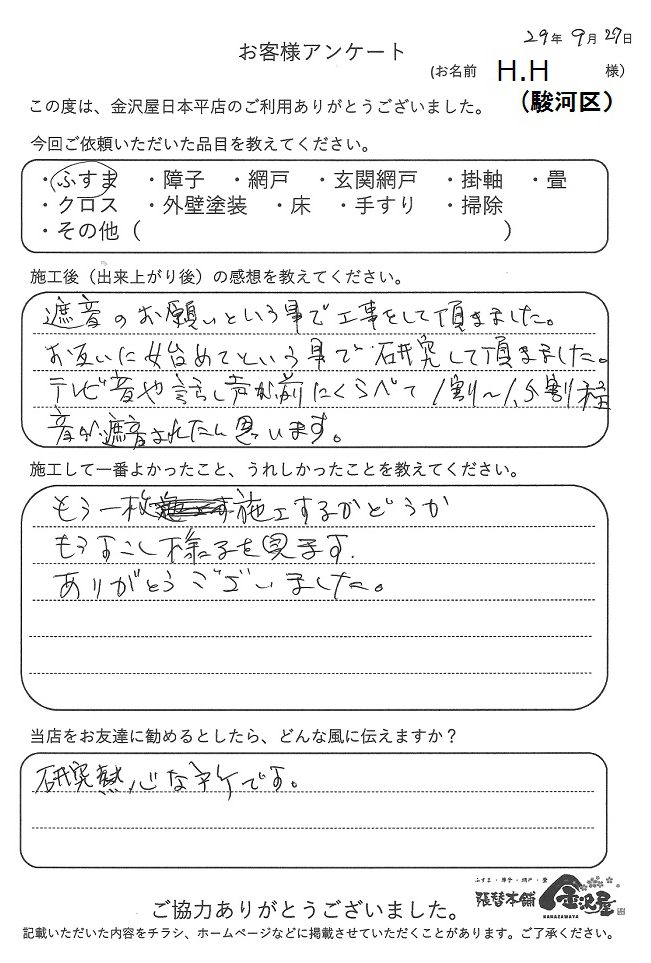 29年 9月 27日
お客様アンケート
(お名前 H.H 様)
(駿河区)
この度は、金沢屋日本平店のご利用ありがとうございました。
今回ご依頼いただいた品目を教えてください。
・ふすま ・障子 ・網戸 ・玄関網戸 ・掛軸 ・畳
・クロス ・外壁塗装 ・床 ・手すり ・掃除
・その他 ( )
施工後（出来上がり後）の感想を教えてください。
遮音のお願いという事で工事をして頂ました。
お互いに始めてという事で研究して頂ました。
テレビ音や話し声が前にくらべて1割〜1,5割程
音が遮音されたと思います。
施工して一番よかったこと、うれしかったことを教えてください。
もう一枚施工するかどうか
もうすこし様子を見ます.
ありがとうございました。
当店をお友達に勧めるとしたら、どんな風に伝えますか？
研究熱心な です。
ふすま・障子・網戸・畳
張替本舗 金沢屋
KANAZAWAYA
ご協力ありがとうございました。
記載いただいた内容をチラシ、ホームページなどに掲載させていただくことがあります。ご了承ください。